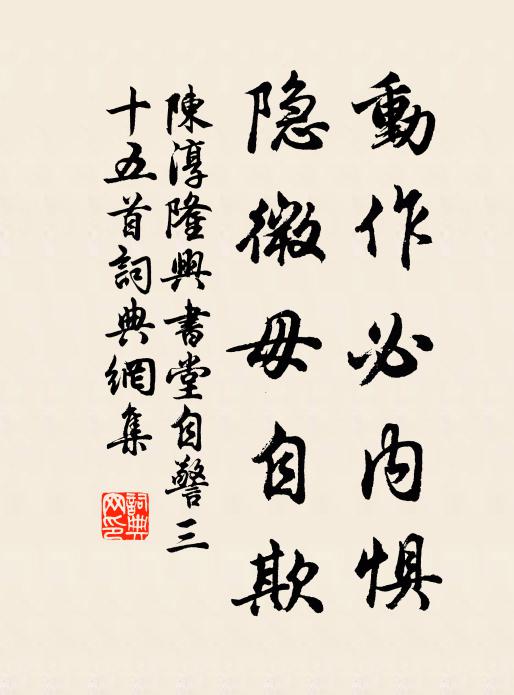 動作必内惧
隐微毋自欺
陳淳隆興書堂自警三
十五首詞典網集
詞典網印